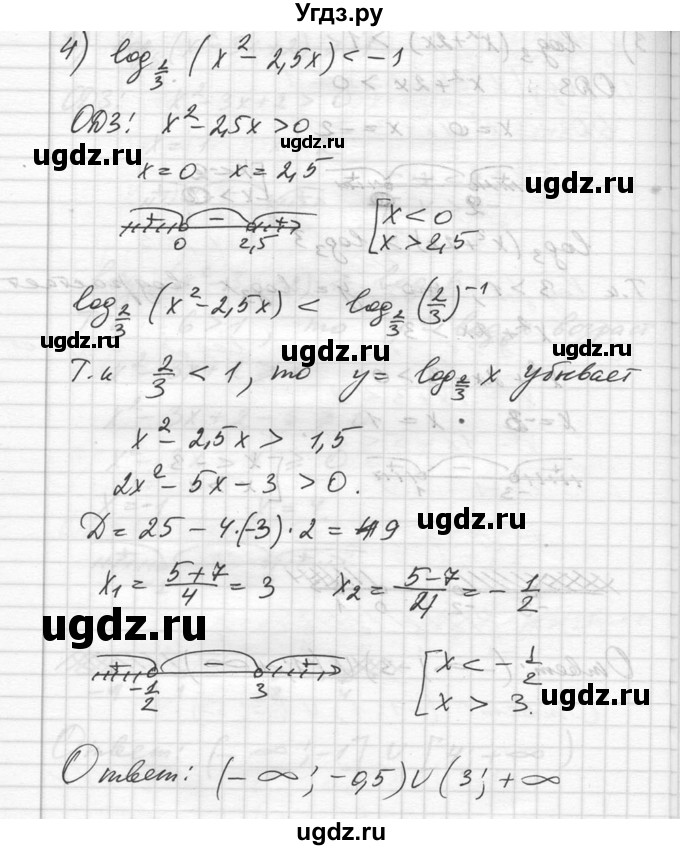 Угдз.ру
4) log_{2/3} (x² - 2,5x) < -1
ОДЗ: x² - 2,5x > 0
ugdz.ru
ugdz.ru
x = 0 x = 2,5
ugdz.ru
+ - +
0 2,5
[ x < 0
x > 2,5
log_{2/3} (x² - 2,5x) < log_{2/3} (2/3)^{-1}
ugdz.ru
ugdz.ru
ugdz.ru
Т.к 2/3 < 1, то y = log_{2/3} x убывает
x² - 2,5x > 1,5
2x² - 5x - 3 > 0.
D = 25 - 4·(-3)·2 = 49
ugdz.ru
x₁ = 5+7/4 = 3 x₂ = 5-7/4 = - 1/2
ugdz.ru
+ - +
-1/2 3
[ x < - 1/2
x > 3.
ugdz.ru
ugdz.ru
Ответ: (-∞; -0,5) ∪ (3; +∞
ugdz.ru
ugdz.ru